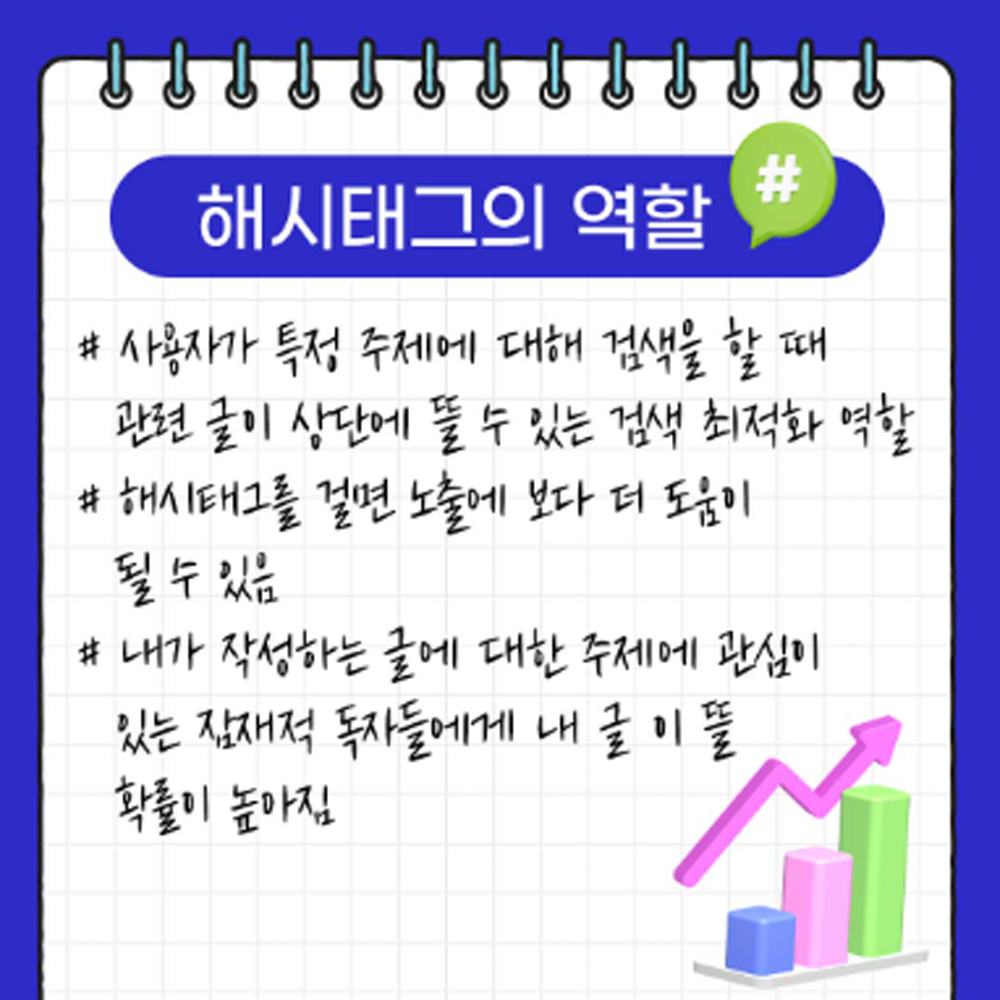 해시태그의 역할 #
# 사용자가 특정 주제에 대해 검색을 할 때
관련 글이 상단에 뜰 수 있는 검색 최적화 역할
# 해시태그를 걸면 노출에 보다 더 도움이
될 수 있음
# 내가 작성하는 글에 대한 주제에 관심이
있는 잠재적 독자들에게 내 글 이 뜰
확률이 높아짐